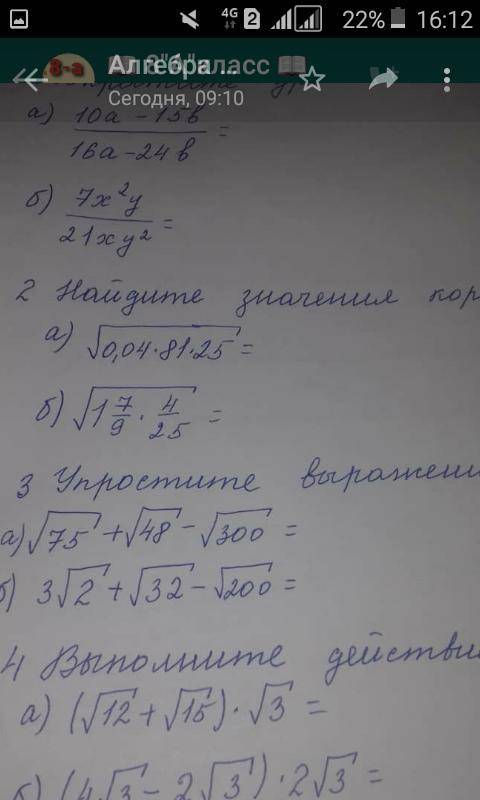 4G 2 22% 16:12
8-а Алгебра ... класс
Сегодня, 09:10
а) 10a - 15b / 16a - 24b =
б) 7x²y / 21xy² =
2 Найдите значения кор
а) √0,04·81·25 =
б) √1 7/9 · 4/25 =
3 Упростите выражени
а) √75 + √48 - √300 =
б) 3√2 + √32 - √200 =
4 Выполните действи
а) (√12 + √15) · √3 =
б) (4√3 - 2√3) · 2√3 =